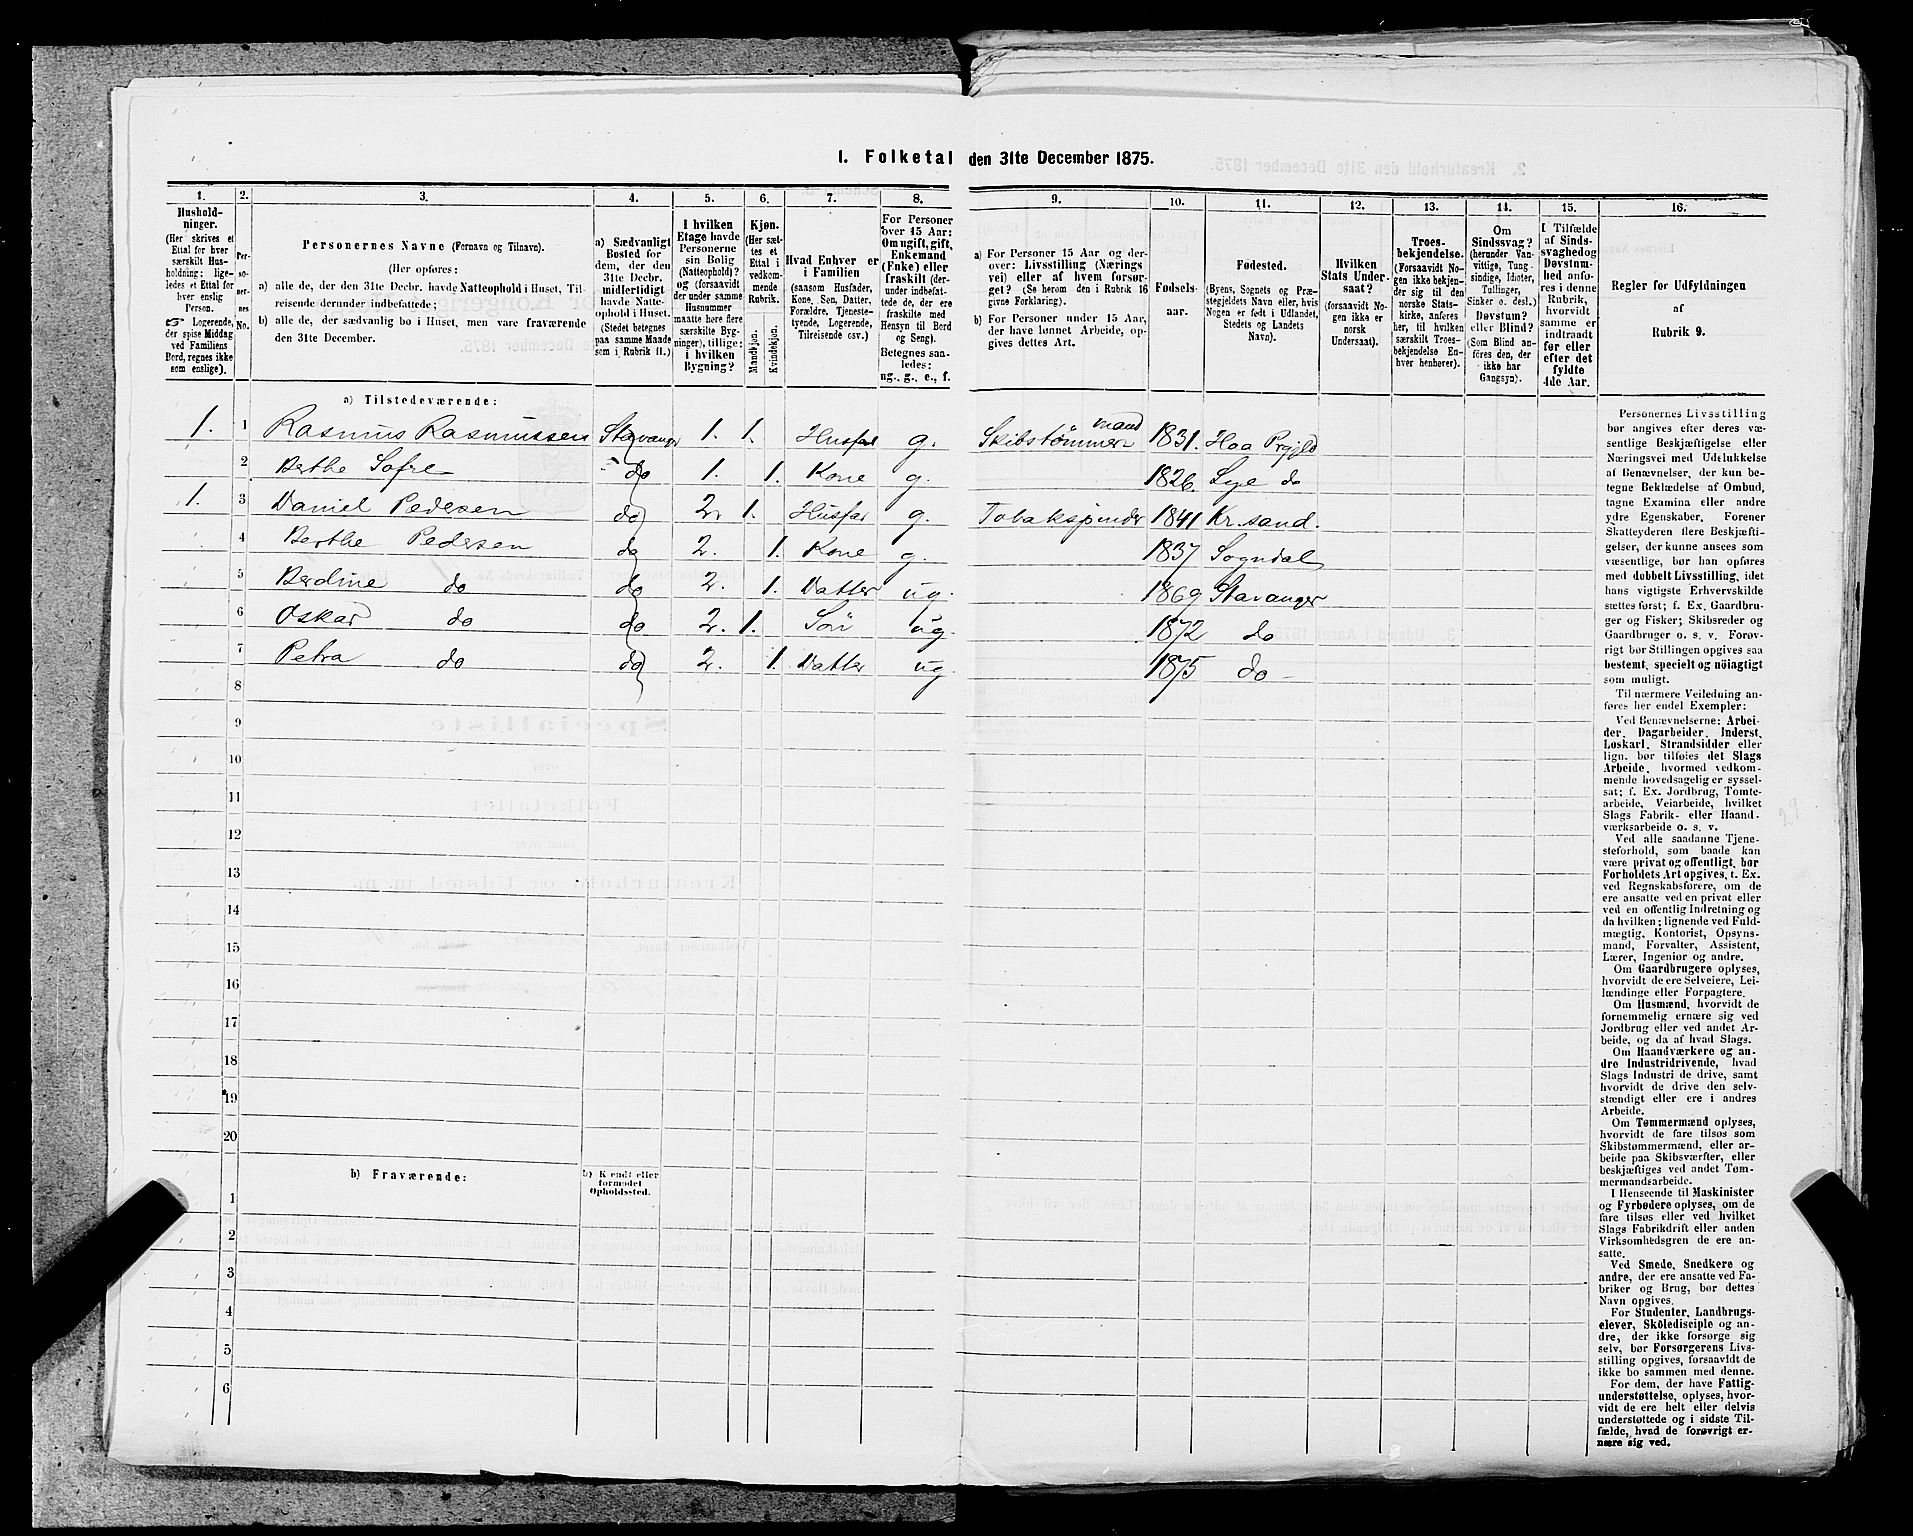 1. Folketal den 31te December 1875.
1. 2. 3. 4. 5. 6. 7. 8. 9. 10. 11. 12. 13. 14. 15. 16.
Husholdninger.
(Her skrives et
Ettal for hver
særskilt Husholdning;
ligeledes et Ettal for
hver enslig
Person.
☞ Logerende,
der spise Middag
ved Familiens
Bord, regnes ikke
som enslige).
Personernes No.
Personernes Navne (Fornavn og Tilnavn).
(Her opføres:
a) alle de, der den 31te Decbr. havde Natteophold i Huset, Tilreisende derunder indbefattede;
b) alle de, der sædvanlig bo i Huset, men vare fraværende
den 31te December.
a) Sædvanligt
Bosted for
dem, der den
31te Decbr.
midlertidigt
havde Natteophold i Huset.
(Stedet betegnes
paa samme Maade
som i Rubrik 11.)
I hvilken
Etage havde
Personerne
sin Bolig
(Natteophold)?
og (forsaavidt
der under samme
Husnummer
maatte høre flere
særskilte Bygninger), tillige:
i hvilken
Bygning?
Kjøn.
(Her sættes et
Ettal i
vedkommende
Rubrik.
Mandkjøn.
Kvindekjøn.
Hvad Enhver er
i Familien
(saasom Husfader,
Kone, Søn, Datter,
Forældre, Tjenestetyende, Logerende,
Tilreisende osv.)
For Personer
over 15 Aar:
Om ugift, gift,
Enkemand
(Enke) eller
fraskilt (derunder indbefattede de, der ere
fraskilte med
Hensyn til Bord
og Seng).
Betegnes saaledes:
ug., g., e., f.
a) For Personer 15 Aar og derover: Livsstilling (Næringsvei) eller af hvem forsørget? (Se herom den i Rubrik 16
givne Forklaring).
b) For Personer under 15 Aar,
der have lønnet Arbeide, opgives dettes Art.
Fødselsaar.
Fødested.
(Byens, Sognets og Præstegjeldets Navn eller, hvis
Nogen er født i Udlandet,
Stedets og Landets
Navn).
Hvilken
Stats Undersaat?
(forsaavidt Nogen ikke er
norsk
Undersaat).
Troesbekjendelse.
(Forsaavidt Nogen ikke bekjender sig til den
norske Statskirke, anføres
her, til hvilken
særskilt Troesbekjendelse Enhver henhører).
Om
Sindssvag?
(herunder Vanvittige, Tungsindige, Idioter,
Tullinger,
Sinker o. desl.)
Døvstum?
eller Blind?
(Som Blind anføres den, der
ikke har
Gangsyn).
I Tilfælde
af Sindssvaghed og
Døvstumhed anføres i denne
Rubrik,
hvorvidt
samme er
indtraadt
før eller
efter det
fyldte
4de Aar.
Regler for Udfyldningen
af
Rubrik 9.
a) Tilstedeværende:
1. 1 Rasmus Rasmussen Stavanger 1. 1. Husfar g. Skibstømmermand 1831.
2 Berthe Sofie do 1. 1. Kone g. 1826. Lye do
1. 3 Daniel Pedersen do 2. 1. Husfar g. Tobakspinder 1841 Kr.sand.
4 Berthe Pedersen do 2. 1. Kone g. 1837 Sogndal
5 Berdine do do 2. 1. Datter ug. 1869 Stavanger
6 Oskar do do 2. 1. Søn ug. 1872 do
7 Petra do do 2. 1. Datter ug 1875 do
8
9
10
11
12
13
14
15
16
17
18
19
20
b) Fraværende:
b) Kjendt eller
formodet
Opholdssted.
1
2
3
4
5
6
Personernes Livsstilling
bør angives efter deres væsentlige Beskjæftigelse eller
Næringsvei med Udelukkelse
af Benævnelser, der kun betegne Beklædelse af Ombud,
tagne Examina eller andre
ydre Egenskaber. Forener
Skatteyderen flere Beskjæftigelser, der kunne ansees som
væsentlige, bør han opføres
med dobbelt Livsstilling, idet
hans vigtigste Erhvervskilde
sættes først; f. Ex. Gaardbruger og Fisker; Skibsreder og
Gaardbruger o. s. v. Forøvrigt bør Stillingen opgives saa
bestemt, specielt og nöiagtigt
som muligt.
Til nærmere Veiledning anføres her endel Exempler:
Ved Benævnelserne: Arbeider, Dagarbeider, Inderst,
Løskarl, Strandsidder eller
lign. bør tilføies det Slags
Arbeide, hvormed vedkommende hovedsagelig er sysselsat; f. Ex. Jordbrug, Tomtearbeide, Veiarbeide, hvilket
Slags Fabrik- eller Haandværksarbeide o. s. v.
Ved alle saadanne Tjenesteforhold, som baade kan
være privat og offentligt, bør
Forholdets Art opgives, t. Ex.
ved Regnskabsførere, om de
ere ansatte ved en privat eller
ved en offentlig Indretning og
da hvilken; lignende ved Fuldmægtig, Kontorist, Opsynsmand, Forvalter, Assistent,
Lærer, Ingeniør og andre.
Om Gaardbrugere oplyses,
hvorvidt de ere Selveiere, Leilændinge eller Forpagtere.
Om Husmænd, hvorvidt de
fornemmelig ernære sig ved
Jordbrug eller ved andet Arbeide, og da af hvad Slags.
Om Haandværkere og andre Industridrivende, hvad
Slags Industri de drive, samt
hvorvidt de drive den selvstændigt eller ere i andres
Arbeide.
Om Tømmermænd oplyses,
hvorvidt de fare tilsøs som
Skibstømmermænd, eller arbeide paa Skibsværfter, eller
beskjæftiges ved andet Tømmermandsarbeide.
I Henseende til Maskinister
og Fyrbødere oplyses, om de
fare tilsøs eller ved hvilket
Slags Fabrikdrift eller anden
Virksomhedsgren de ere ansatte.
Ved Smede, Snedkere og
andre, der ere ansatte ved Fabriker og Brug, bør dettes
Navn opgives.
For Studenter, Landbrugselever, Skoledisciple og andre, der ikke forsørge sig
selv, bør Forsørgerens Livsstilling opgives, forsaavidt de
ikke bo sammen med denne.
For dem, der have Fattigunderstøttelse, oplyses, hvorvidt de ere helt eller delvis
understøttede og i sidste Tilfælde, hvad de forøvrigt ernære sig ved.